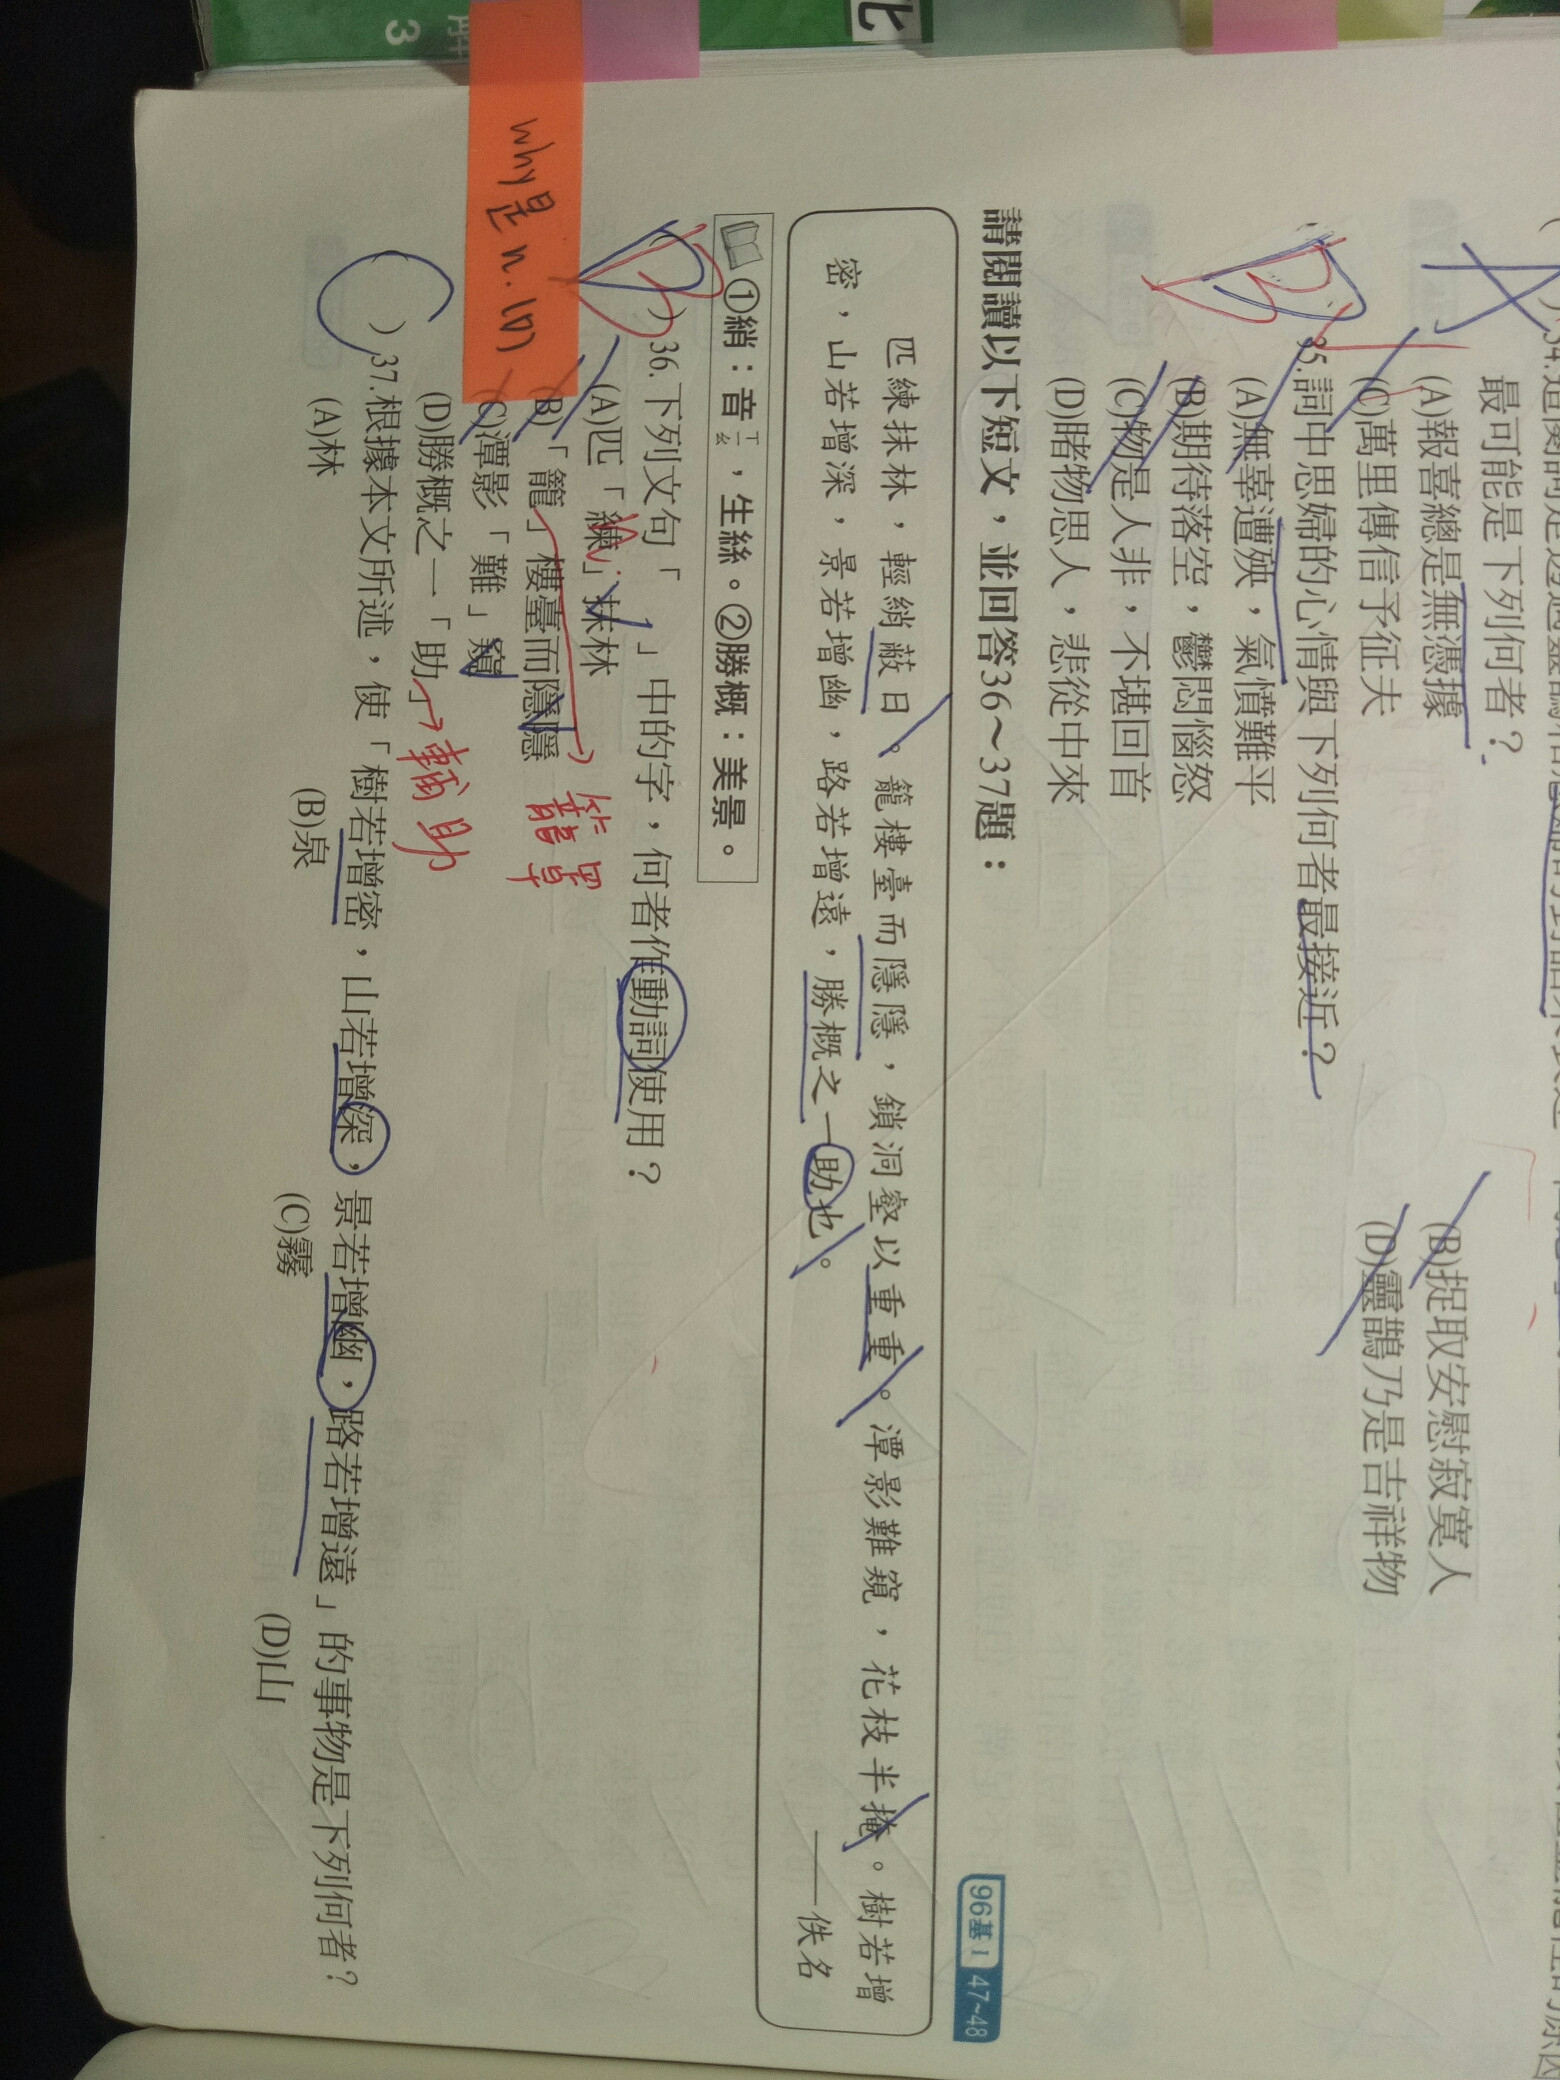 化
3
why是n.(D)
最可能是下列何者？
(A)報喜總是無憑據
(B)捉取安慰寂寞人
(C)萬里傳信予征夫
(D)靈鵲乃是吉祥物
35.詞中思婦的心情與下列何者最接近？
(A)無辜遭殃，氣憤難平
(B)期待落空，鬱悶惱怒
(C)物是人非，不堪回首
(D)睹物思人，悲從中來
請閱讀以下短文，並回答36～37題：
96基1 47~48
匹練抹林，輕綃蔽日。籠樓臺而隱隱，鎖洞壑以重重。潭影難窺，花枝半掩。樹若增
密，山若增深，景若增幽，路若增遠，勝概之一助也。
——佚名
①綃：音ㄒㄧㄠ，生絲。②勝概：美景。
36.下列文句「　」中的字，何者作動詞使用？
(A)匹「練」抹林
(B)「籠」樓臺而隱隱
籠罩
(C)潭影「難」窺
(D)勝概之一「助」
輔助
37.根據本文所述，使「樹若增密，山若增深，景若增幽，路若增遠」的事物是下列何者？
(A)林 (B)泉 (C)霧 (D)山